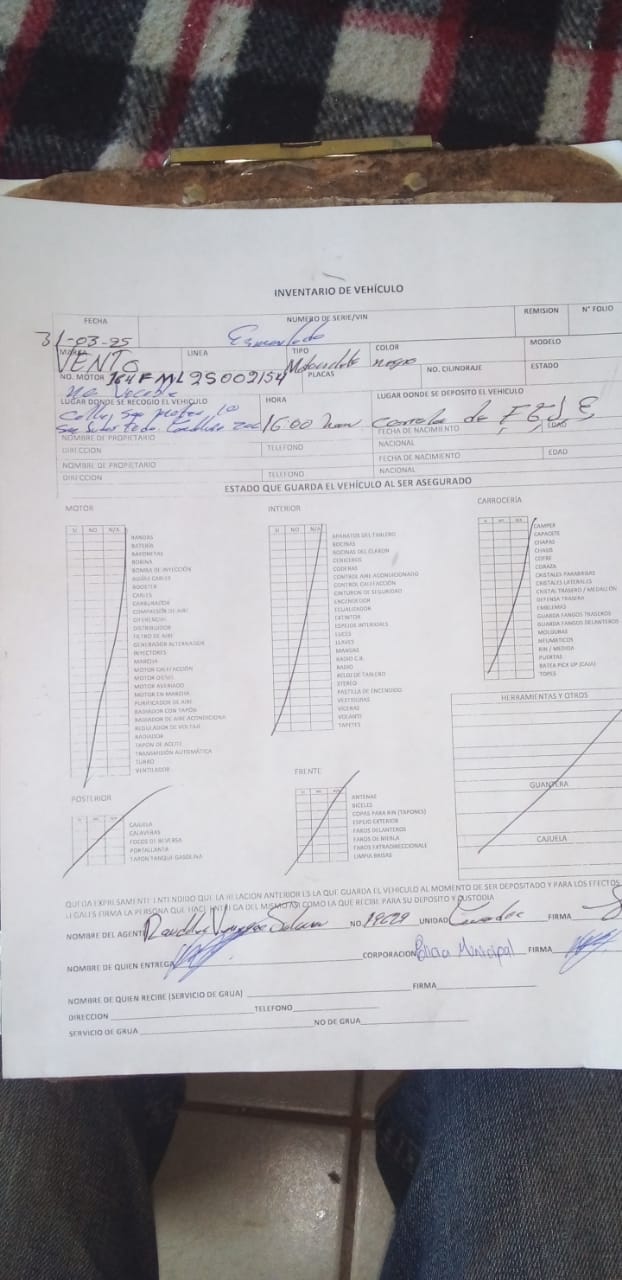 INVENTARIO DE VEHÍCULO
FECHA NUMERO DE SERIE/VIN REMISION N° FOLIO
31-03-25
MARCA LINEA TIPO COLOR MODELO
VENTO Motocicleta negro
NO. MOTOR PLACAS NO. CILINDRAJE ESTADO
LUGAR DONDE SE RECOGIO EL VEHÍCULO HORA LUGAR DONDE SE DEPOSITO EL VEHÍCULO
16:00
NOMBRE DE PROPIETARIO FECHA DE NACIMIENTO EDAD
DIRECCION TELEFONO NACIONAL
NOMBRE DE PROPIETARIO FECHA DE NACIMIENTO EDAD
DIRECCION TELEFONO NACIONAL
ESTADO QUE GUARDA EL VEHÍCULO AL SER ASEGURADO
MOTOR
SI NO N/A
BANDAS
BATERIA
BAYONETAS
BOBINA
BOMBA DE INYECCIÓN
BUJÍAS CABLES
BOOSTER
CABLES
CARBURADOR
COMPRESIÓN DE AIRE
DIFERENCIAL
DISTRIBUIDOR
FILTRO DE AIRE
GENERADOR ALTERNADOR
INYECTORES
MARCHA
MOTOR CALEFACCIÓN
MOTOR DIESEL
MOTOR AVERIADO
MOTOR EN MARCHA
PURIFICADOR DE AIRE
RADIADOR CON TAPÓN
RADIADOR DE AIRE ACONDICIONA
REGULADOR DE VOLTAJE
RADIADOR
TAPON DE ACEITE
TRANSMISIÓN AUTOMÁTICA
TURBO
VENTILADOR
INTERIOR
SI NO N/A
APARATOS DEL TABLERO
BOCINAS
BOCINAS DEL CLAXON
CENICEROS
CODERAS
CONTROL AIRE ACONDICIONADO
CONTROL CALEFACCIÓN
CINTURON DE SEGURIDAD
ENCENDEDOR
ECUALIZADOR
EXTINTOR
ESPEJOS INTERIORES
LUCES
LLAVES
MANIJAS
RADIO C.B.
RADIO
RELOJ DE TABLERO
STEREO
PASTILLA DE ENCENDIDO
VESTIDURAS
VICERAS
VOLANTE
TAPETES
CARROCERÍA
CAMPER
CAPACETE
CHAPAS
CHASIS
COFRE
CORAZA
CRISTALES PARABRISAS
CRISTALES LATERALES
CRISTAL TRASERO / MEDALLON
DEFENSA TRASERA
EMBLEMAS
GUARDA FANGOS TRASEROS
GUARDA FANGOS DELANTEROS
MOLDURAS
NEUMATICOS
RIN / MEDIDA
PUERTAS
BATEA PICK UP (CAJA)
TOPES
HERRAMIENTAS Y OTROS
GUANTERA
CAJUELA
POSTERIOR
CAJUELA
CALAVERAS
FOCOS DE REVERSA
PORTALLANTA
TAPON TANQUE GASOLINA
FRENTE
ANTENAS
BICELES
COPAS PARA RIN (TAPONES)
ESPEJO EXTERIOR
FAROS DELANTEROS
FAROS DE NIEBLA
FAROS EXTRADIRECCIONALE
LIMPIA BRISAS
QUEDA EXPRESAMENTE ENTENDIDO QUE LA RELACION ANTERIOR ES LA QUE GUARDA EL VEHICULO AL MOMENTO DE SER DEPOSITADO Y PARA LOS EFECTOS
LEGALES FIRMA LA PERSONA QUE HACE ENTREGA DEL MISMO ASI COMO LA QUE RECIBE PARA SU DEPOSITO Y CUSTODIA
NOMBRE DEL AGENTE NO. UNIDAD FIRMA
NOMBRE DE QUIEN ENTREGA CORPORACION Policia Municipal FIRMA
NOMBRE DE QUIEN RECIBE (SERVICIO DE GRUA) FIRMA
DIRECCION TELEFONO
SERVICIO DE GRUA NO DE GRUA